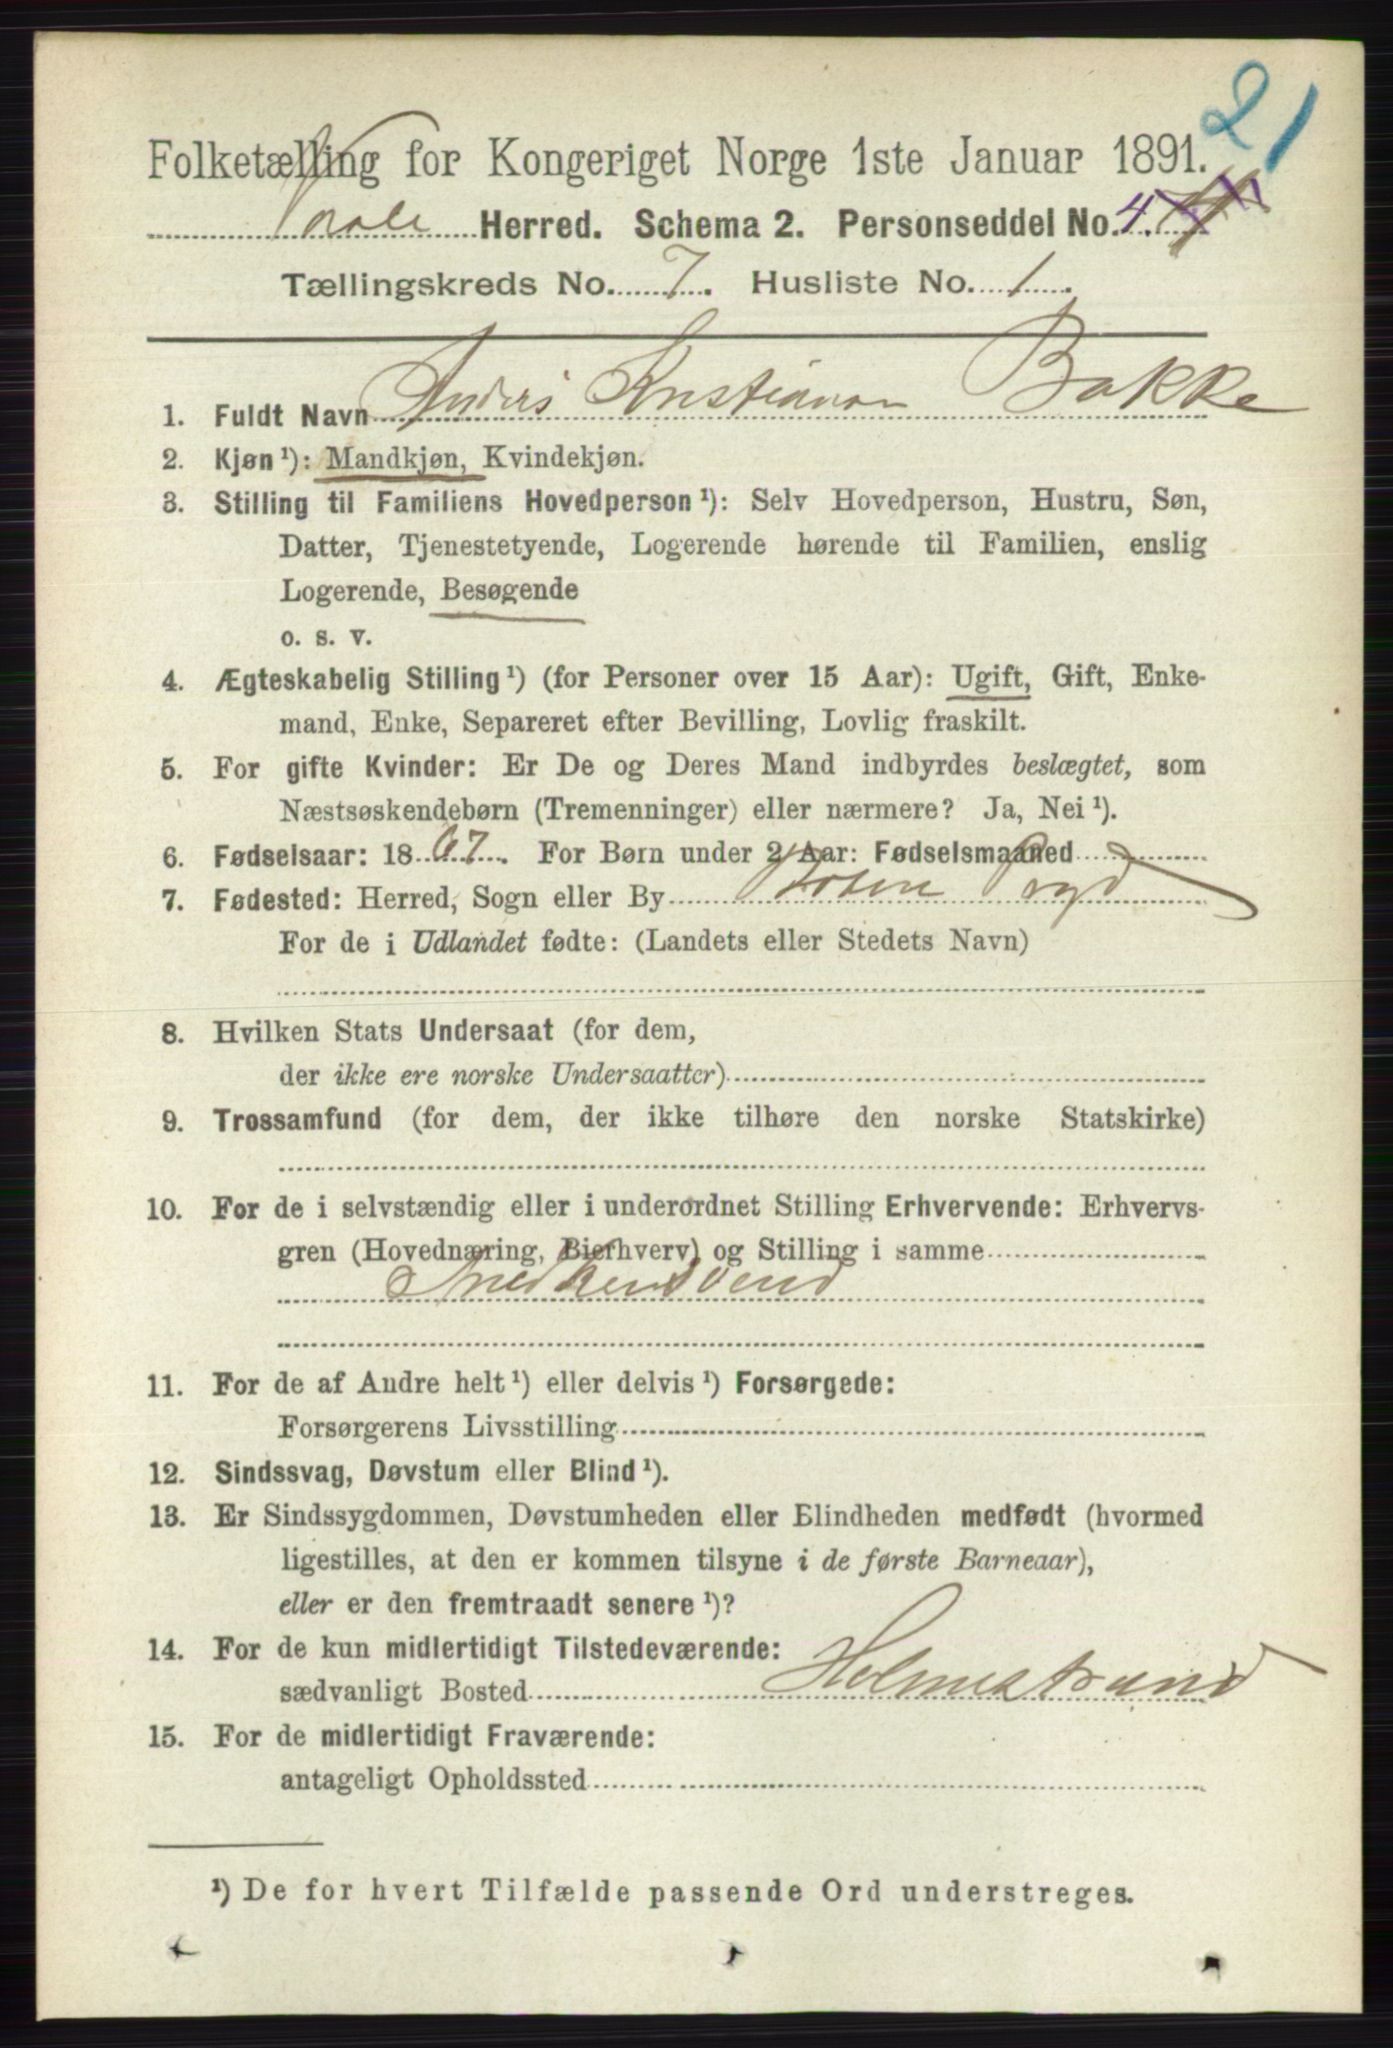 21
Folketælling for Kongeriget Norge 1ste Januar 1891.
Vaale Herred. Schema 2. Personseddel No. 4.
Tællingskreds No. 7. Husliste No. 1.
1. Fuldt Navn Anders Kristianson Bakke
2. Kjøn ¹): Mandkjøn, Kvindekjøn.
3. Stilling til Familiens Hovedperson ¹): Selv Hovedperson, Hustru, Søn,
Datter, Tjenestetyende, Logerende hørende til Familien, enslig
Logerende, Besøgende
o. s. v.
4. Ægteskabelig Stilling ¹) (for Personer over 15 Aar): Ugift, Gift, Enke-
mand, Enke, Separeret efter Bevilling, Lovlig fraskilt.
5. For gifte Kvinder: Er De og Deres Mand indbyrdes beslægtet, som
Næstsøskendebørn (Tremenninger) eller nærmere? Ja, Nei ¹).
6. Fødselsaar: 1867. For Børn under 2 Aar: Fødselsmaaned
7. Fødested: Herred, Sogn eller By
For de i Udlandet fødte: (Landets eller Stedets Navn)
8. Hvilken Stats Undersaat (for dem,
der ikke ere norske Undersaatter)
9. Trossamfund (for dem, der ikke tilhøre den norske Statskirke)
10. For de i selvstændig eller i underordnet Stilling Erhvervende: Erhvervs-
gren (Hovednæring, Bierhverv) og Stilling i samme
Snedkersvend
11. For de af Andre helt ¹) eller delvis ¹) Forsørgede:
Forsørgerens Livsstilling
12. Sindssvag, Døvstum eller Blind ¹).
13. Er Sindssygdommen, Døvstumheden eller Blindheden medfødt (hvormed
ligestilles, at den er kommen tilsyne i de første Barneaar),
eller er den fremtraadt senere ¹)?
14. For de kun midlertidigt Tilstedeværende:
sædvanligt Bosted Holmestrand
15. For de midlertidigt Fraværende:
antageligt Opholdssted
¹) De for hvert Tilfælde passende Ord understreges.